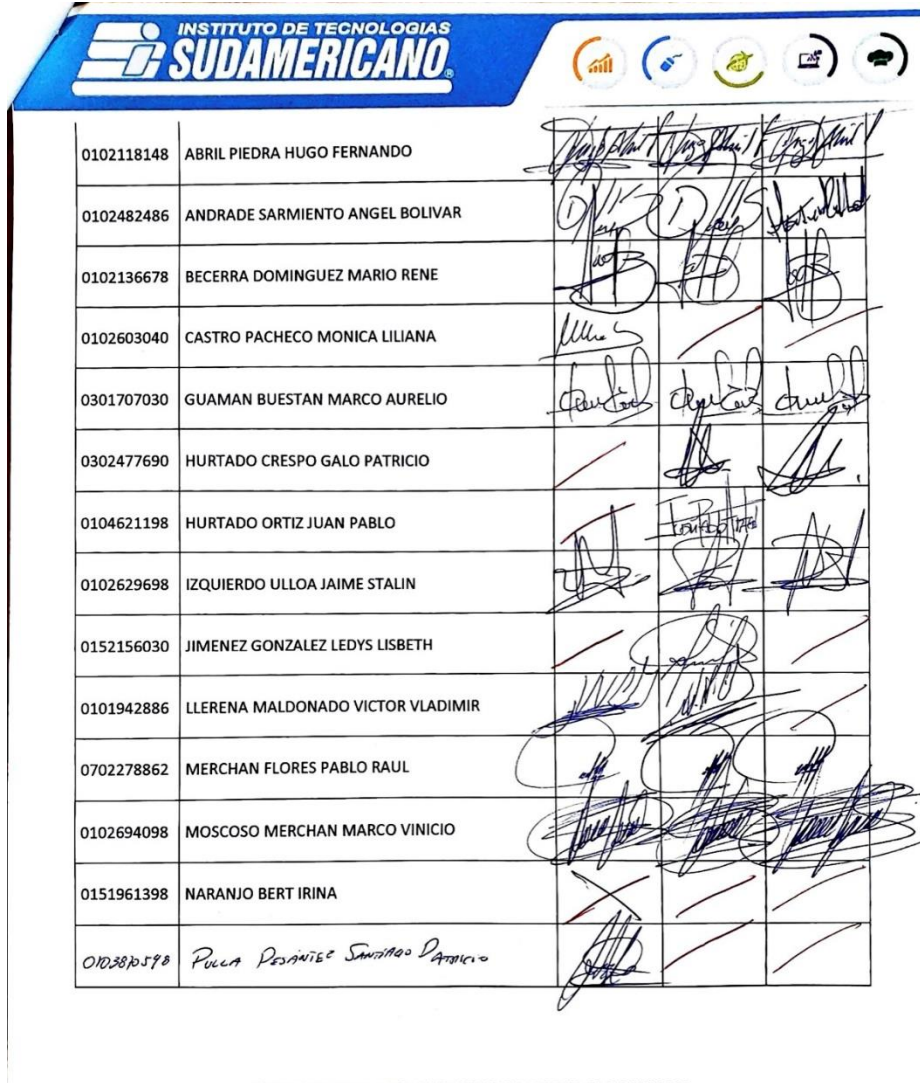 INSTITUTO DE TECNOLOGIAS
SUDAMERICANO
0102118148 ABRIL PIEDRA HUGO FERNANDO
0102482486 ANDRADE SARMIENTO ANGEL BOLIVAR
0102136678 BECERRA DOMINGUEZ MARIO RENE
0102603040 CASTRO PACHECO MONICA LILIANA
0301707030 GUAMAN BUESTAN MARCO AURELIO
0302477690 HURTADO CRESPO GALO PATRICIO
0104621198 HURTADO ORTIZ JUAN PABLO
0102629698 IZQUIERDO ULLOA JAIME STALIN
0152156030 JIMENEZ GONZALEZ LEDYS LISBETH
0101942886 LLERENA MALDONADO VICTOR VLADIMIR
0702278862 MERCHAN FLORES PABLO RAUL
0102694098 MOSCOSO MERCHAN MARCO VINICIO
0151961398 NARANJO BERT IRINA
PULLA PESANTEZ SANTIAGO PATRICIO